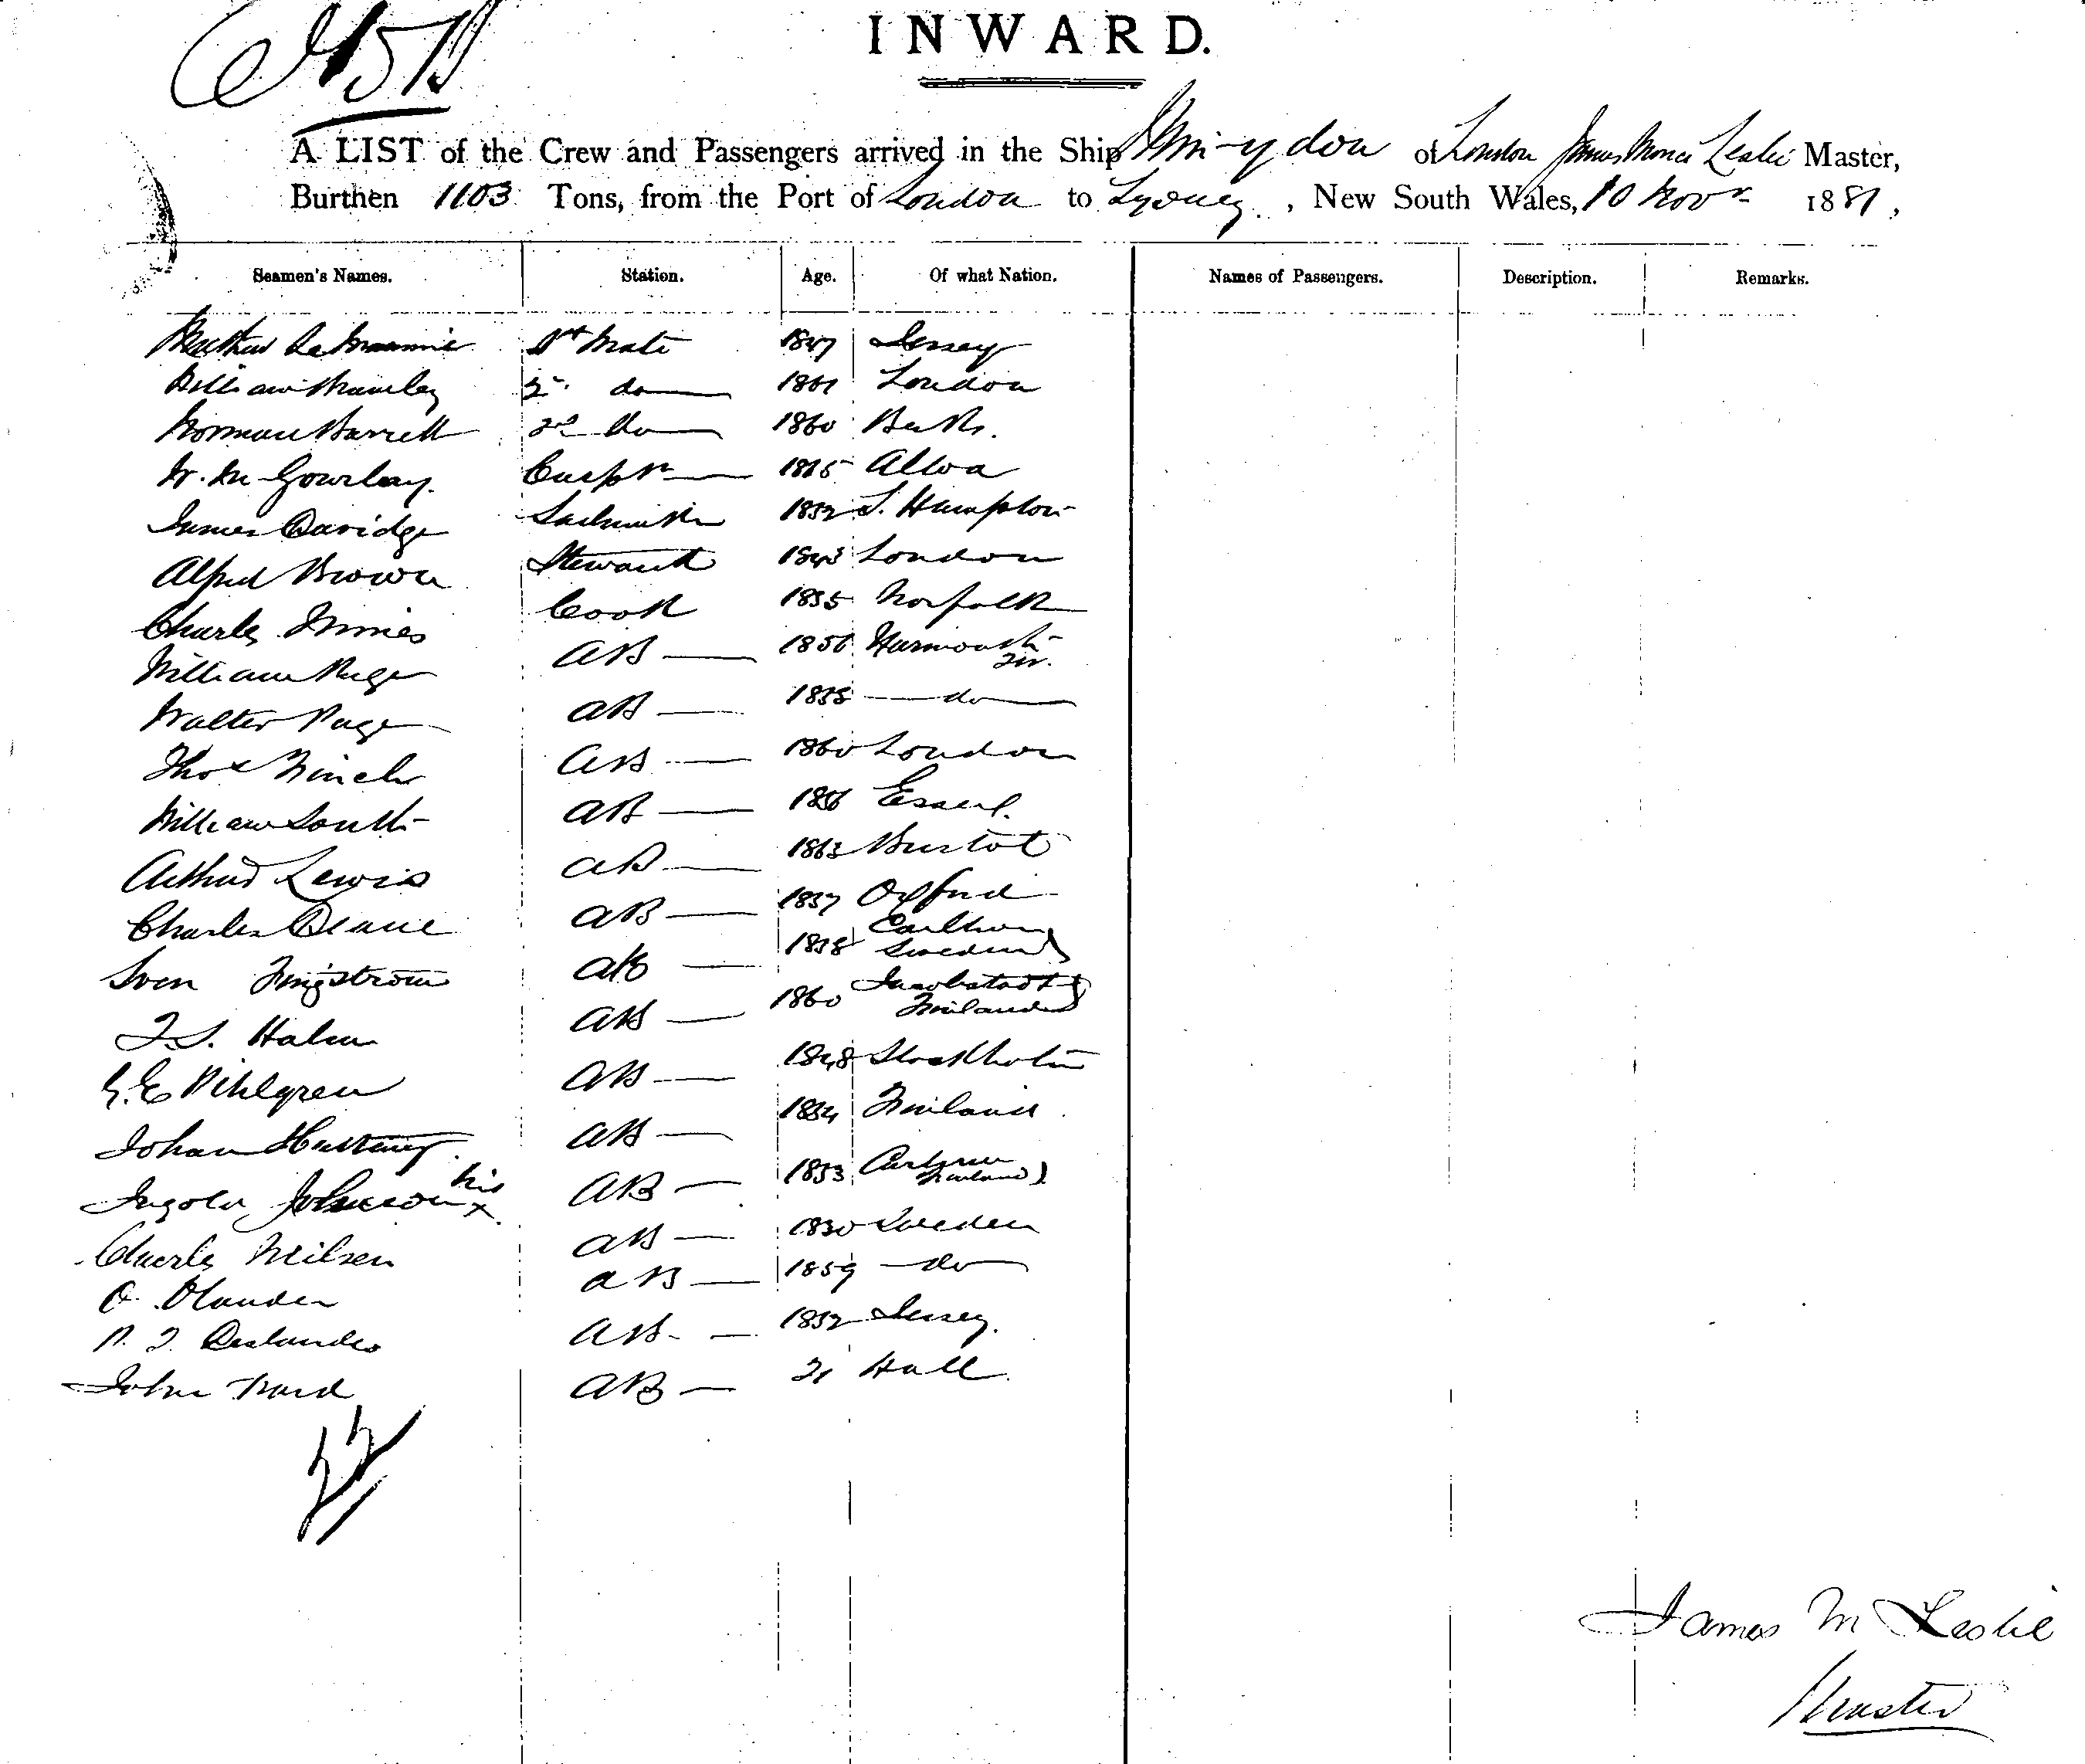 INWARD.
A LIST of the Crew and Passengers arrived in the Ship of London James Leslie Master,
Burthen 1103 Tons, from the Port of London to Sydney, New South Wales, 10 Novr 1881,
Seamen's Names. Station. Age. Of what Nation. Names of Passengers. Description. Remarks.
1st Mate 1847 Jersey
William 2nd do 1861 London
Norman Barrett 3rd do 1860
Gourlay. Carptr Alloa
James Davidge Sailmaker 1852 S. Hampton
Alfred Brown Steward 1843 London
Charles Cook 1855 Norfolk
William Page AB 1856 Yarmouth
Walter Page AB 1858 do
Thos Finch AB 1860 London
William South AB 1856 Essex.
Arthur Lewis AB 1863 Bristol
Charles Deane AB 1857 Oxford
Sven AB 1858 Sweden
AB 1860 Jacobstadt Finland
AB 1848 Stockholm
Johan AB 1834 Finland
Johnson his x AB 1853
Charles Neilsen AB 1830 Sweden
O. Olander AB 1859 do
Deslandes AB 1852 Jersey.
John Ward AB 21 Hull
22
James M Leslie
Master